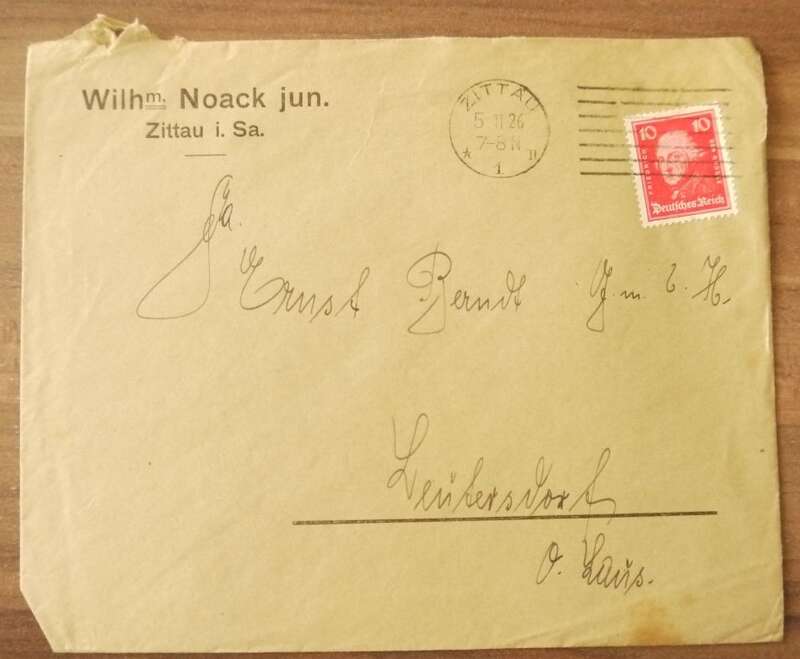 Wilhm. Noack jun.
Zittau i. Sa.
ZITTAU
5 11 26
7-8 N
* 1 n
10 10
FRIEDRICH
Deutsches Reich
Fa.
Ernst Berndt G. m. b. H.
Leutersdorf
O. Laus.